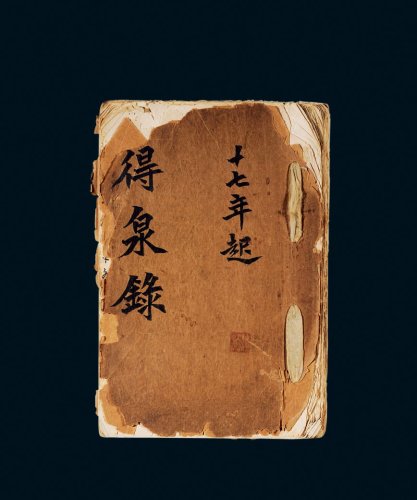 十七年起
得泉錄